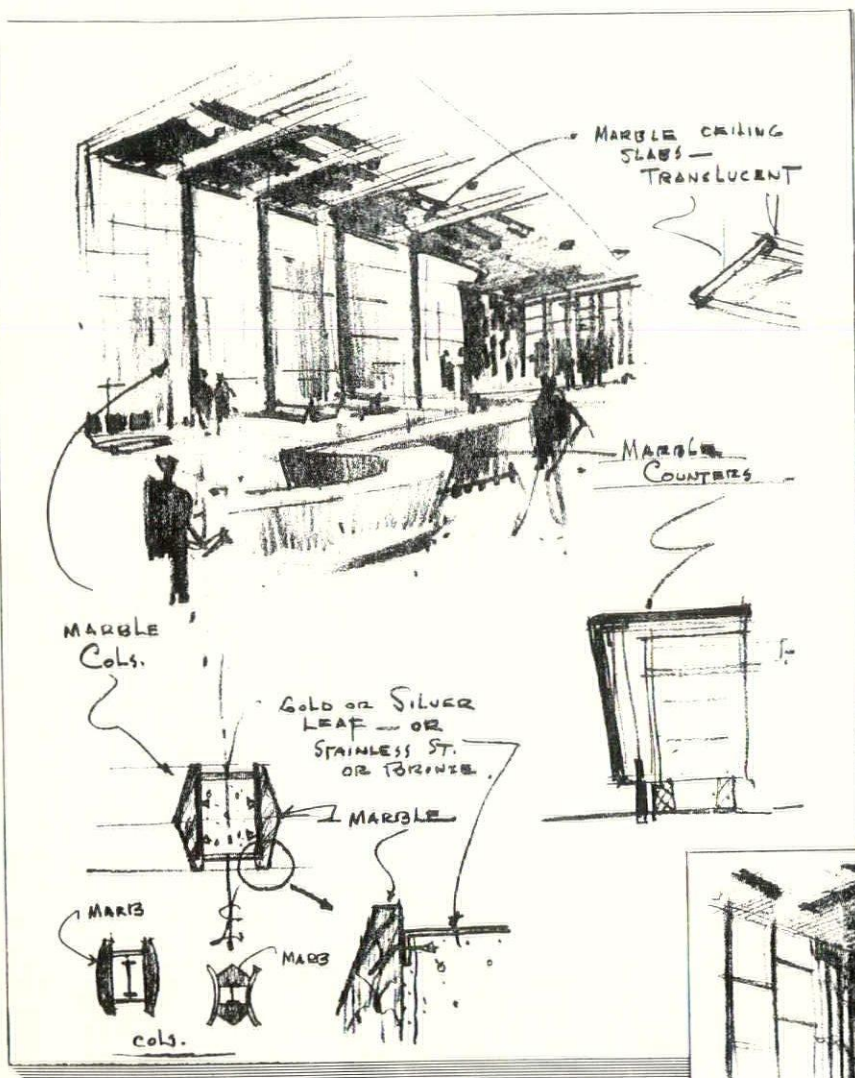 MARBLE CEILING
SLABS —
TRANSLUCENT
MARBLE
COUNTERS
MARBLE
COLS.
GOLD OR SILVER
LEAF — OR
STAINLESS ST.
OR BRONZE
MARBLE
MARB
MARB
COLS.